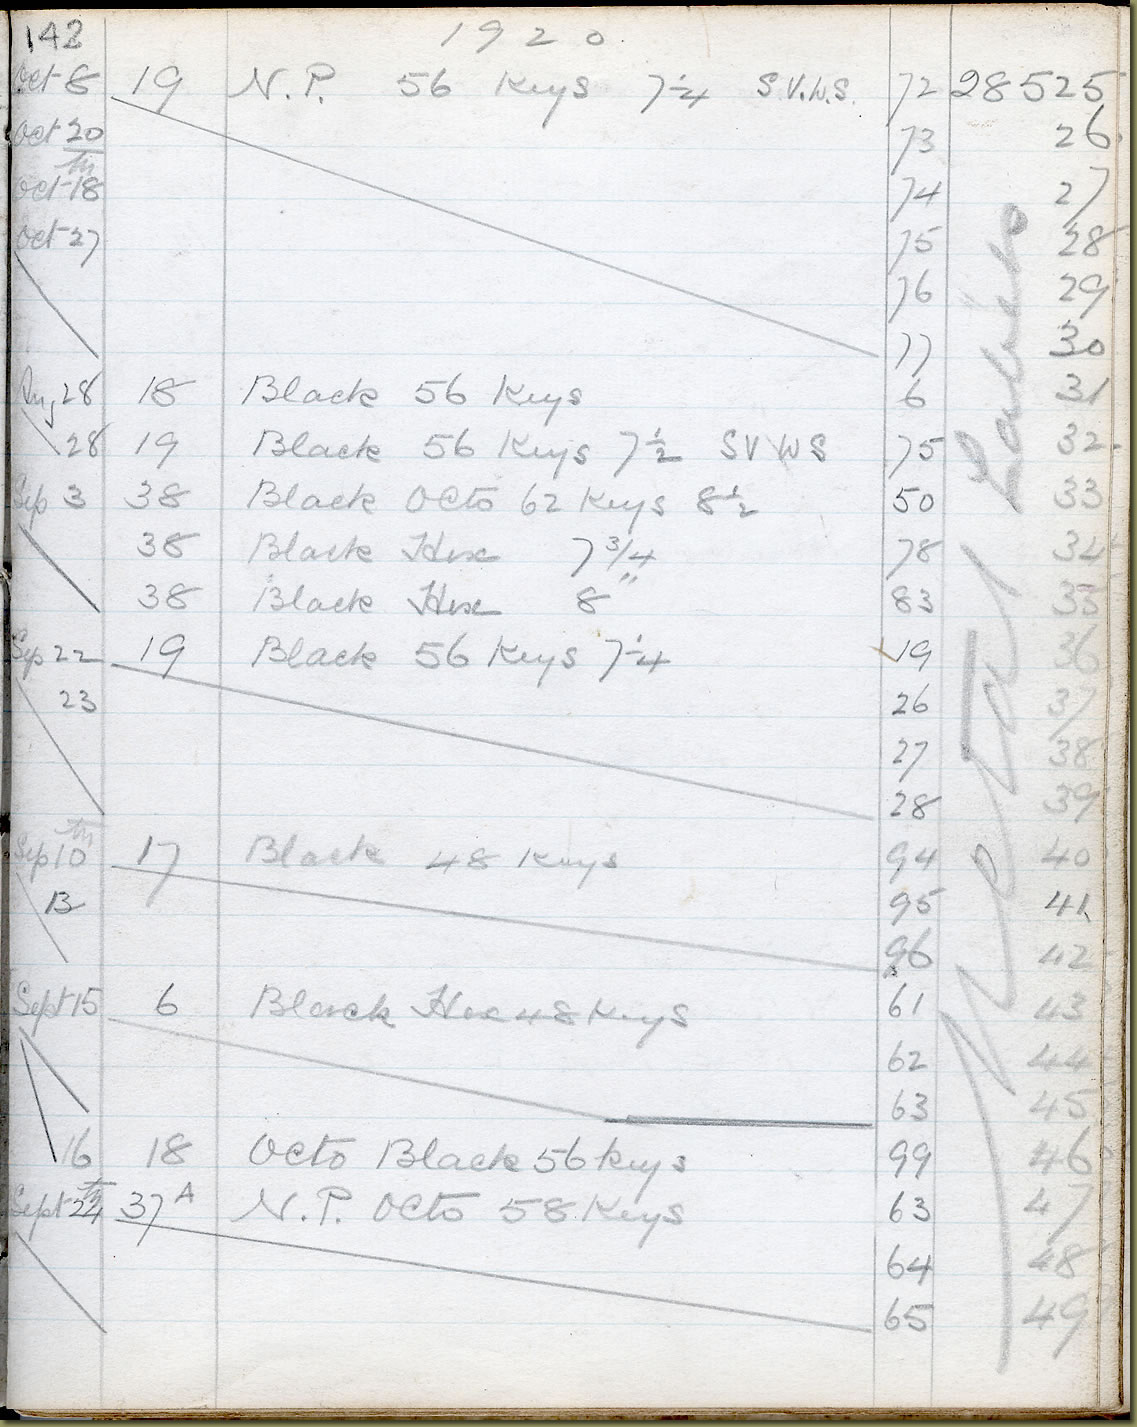 142 1920
Oct 8 19 N.P. 56 Keys 7 1/4 S.V.W.S. 72 28525
Oct 20 73 26
Oct 18 th 74 27
Oct 27 75 28
76 29
77 30
Aug 28 18 Black 56 Keys 6 31
28 19 Black 56 Keys 7 1/2 S V W S 75 32
Sep 3 38 Black Octo 62 Keys 8 1/2 50 33
38 Black Hex 7 3/4" 78 34
38 Black Hex 8" 83 35
Sep 22 19 Black 56 Keys 7 1/4 19 36
23 26 37
27 38
28 39
Sep 10 th 17 Black 48 Keys 94 40
13 95 41
96 42
Sept 15 6 Black Hex 48 Keys 61 43
62 44
63 45
16 18 Octo Black 56 Keys 99 46
Sept 24 th 37A N.P. Octo 58 Keys 63 47
64 48
65 49